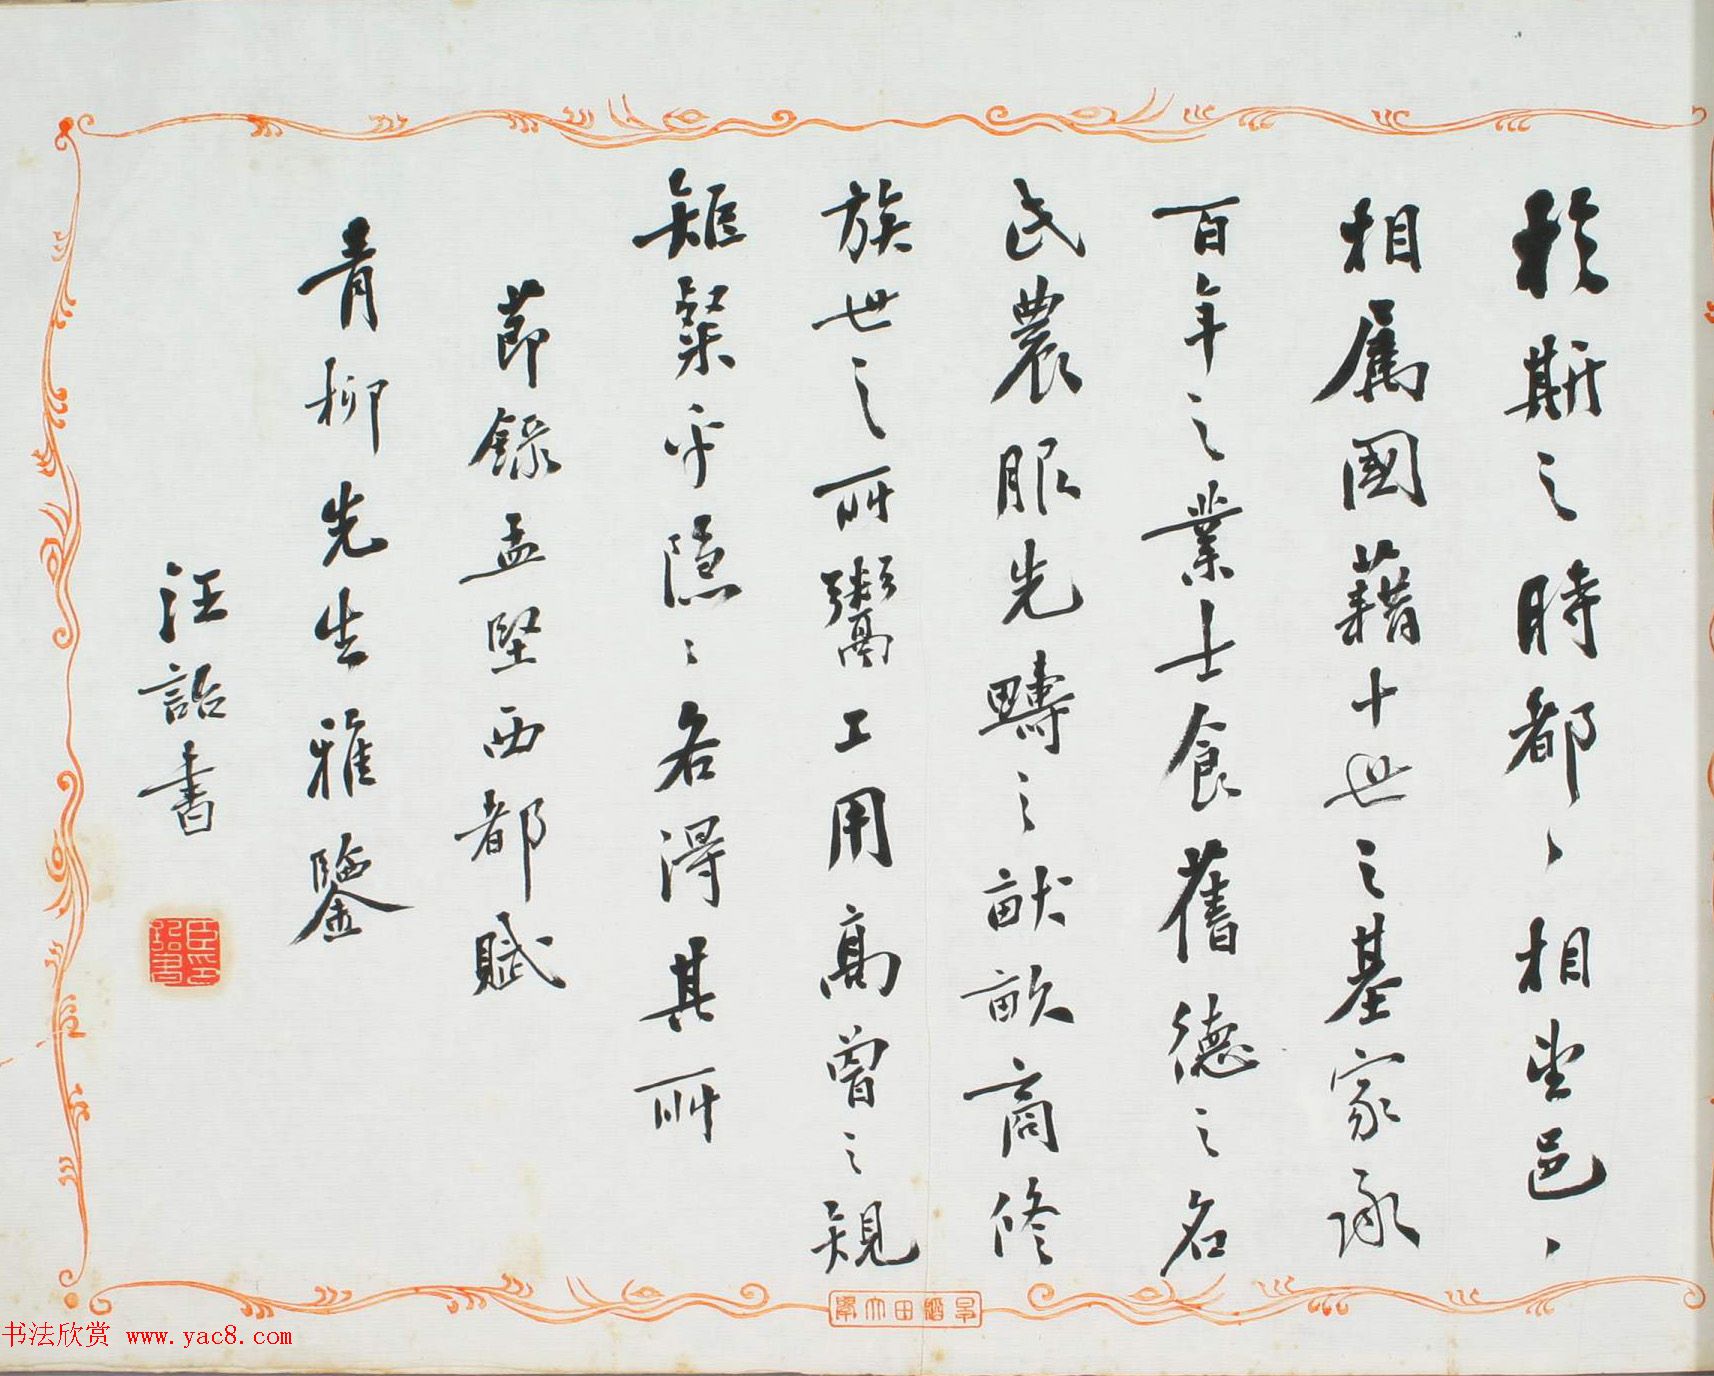 於斯之時都〻相望邑〻
相属國藉十世之基家承
百年之業士食舊德之名
氏農服先疇之畎畝商修
族世之所鬻工用高曾之規
矩粲乎隱〻各得其所
節錄孟堅西都賦
青柳先生雅鑒
汪詒書
书法欣赏 www.yac8.com